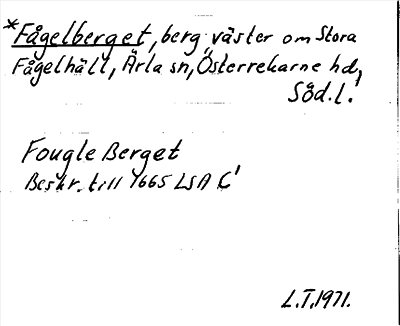 *Fågelberget, berg väster om Stora
Fågelhäll, Ärla sn, Österrekarne hd,
Söd.l.
Fougle Berget
Beskr. till 1665 LSA C1
L.T. 1971.